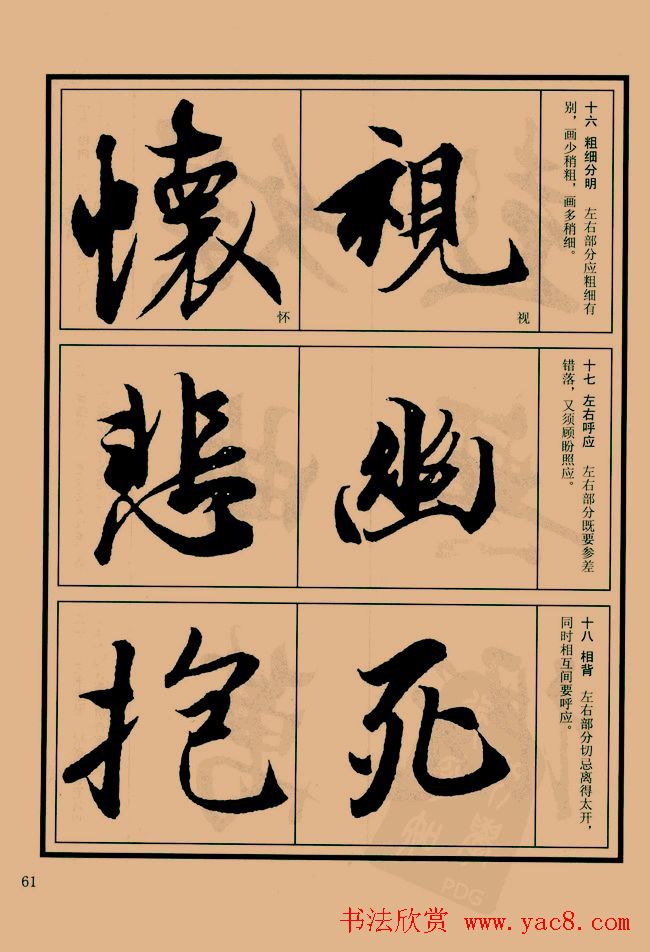 十六 粗细分明 左右部分应粗细有
别，画少稍粗，画多稍细。
視
视
懷
怀
十七 左右呼应 左右部分既要参差
错落，又须顾盼照应。
幽
悲
十八 相背 左右部分切忌离得太开，
同时相互间要呼应。
死
抱
61
PDG
书法欣赏 www.yac8.com